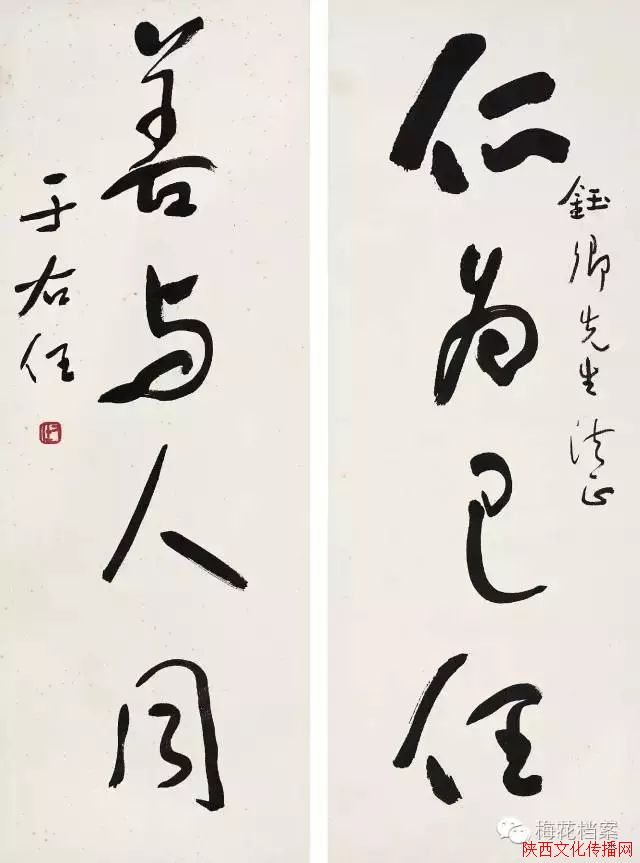 鈺卿先生法正
仁为己任
善与人同
于右任
梅花档案
陕西文化传播网